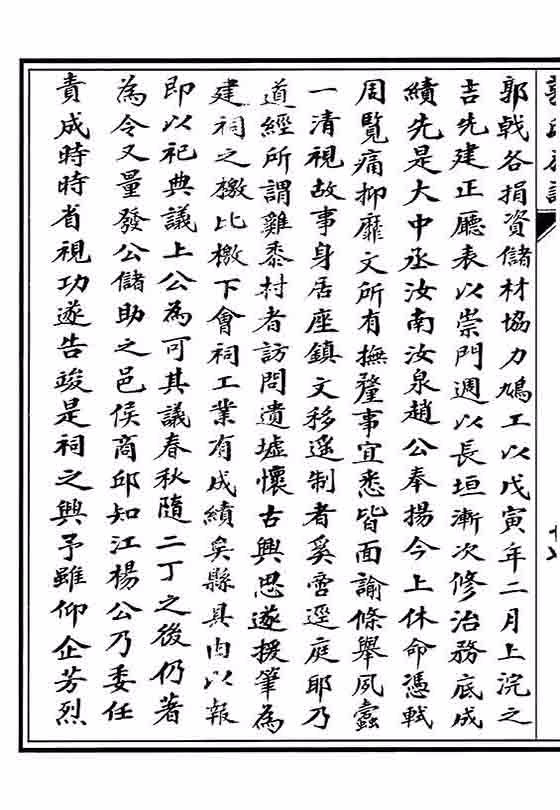 郭戟各捐資儲材協力鳩工以戊寅年二月上浣之
吉先建正廳表以崇門週以長垣漸次修治務底成
績先是大中丞汝南汝泉趙公奉揚今上休命憑軾
周覽痛抑靡文所有撫釐事宜悉皆面諭條舉夙蠹
一清視故事身居座鎮文移遥制者奚啻逕庭耶乃
道經所謂雞黍村者訪問遺墟懷古興思遂援筆為
建祠之檄比檄下會祠工業有成績矣縣具由以報
即以祀典議上公為可其議春秋隨二丁之後仍著
為令又量發公儲助之邑侯商邱知江楊公乃委任
責成時時省視功遂告竣是祠之興予雖仰企芳烈